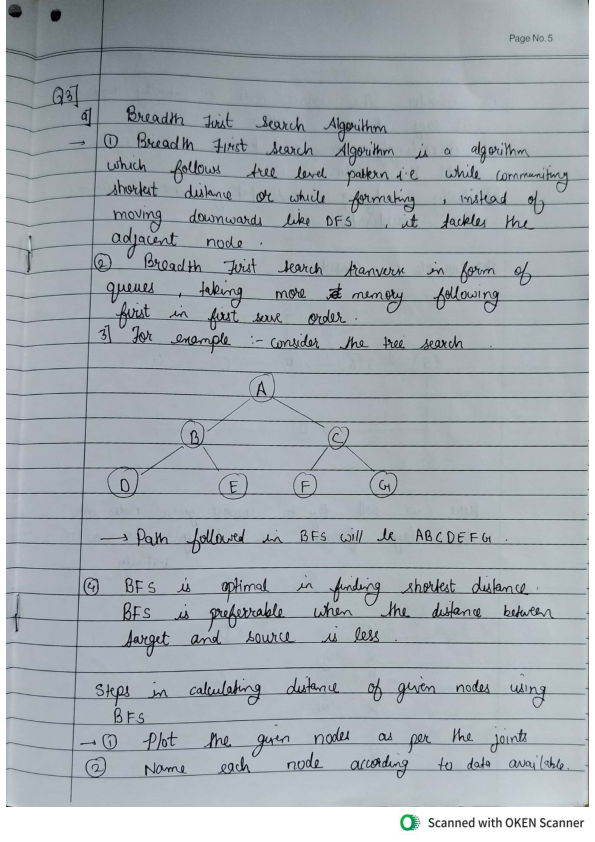 Page No. 5
Q3]
a] Breadth First Search Algorithm
→ ① Breadth First Search Algorithm is a algorithm
which follows tree level pattern i.e while communiting
shortest distance or while formating, instead of
moving downwards like DFS, it tackles the
adjacent node.
② Breadth First search tranverse in form of
queues, taking more memory following
first in first serve order.
3] For example :- consider the tree search
A
B C
D E F G
→ Path followed in BFS will be ABCDEFG.
④ BFS is optimal in finding shortest distance.
BFS is preferrable when the distance between
target and source is less.
Steps in calculating distance of given nodes using
BFS
→ ① Plot the given nodes as per the joints
② Name each node according to data available.
Scanned with OKEN Scanner